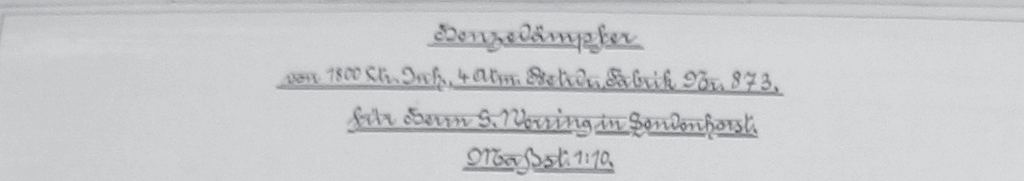 Henzedämpfer
von 1800 Ltr. Inh., 4 Atm. Betrdr., Fabrik Nr. 873.
für Herrn S. Werring in Sendenhorst.
Maßst. 1:10.